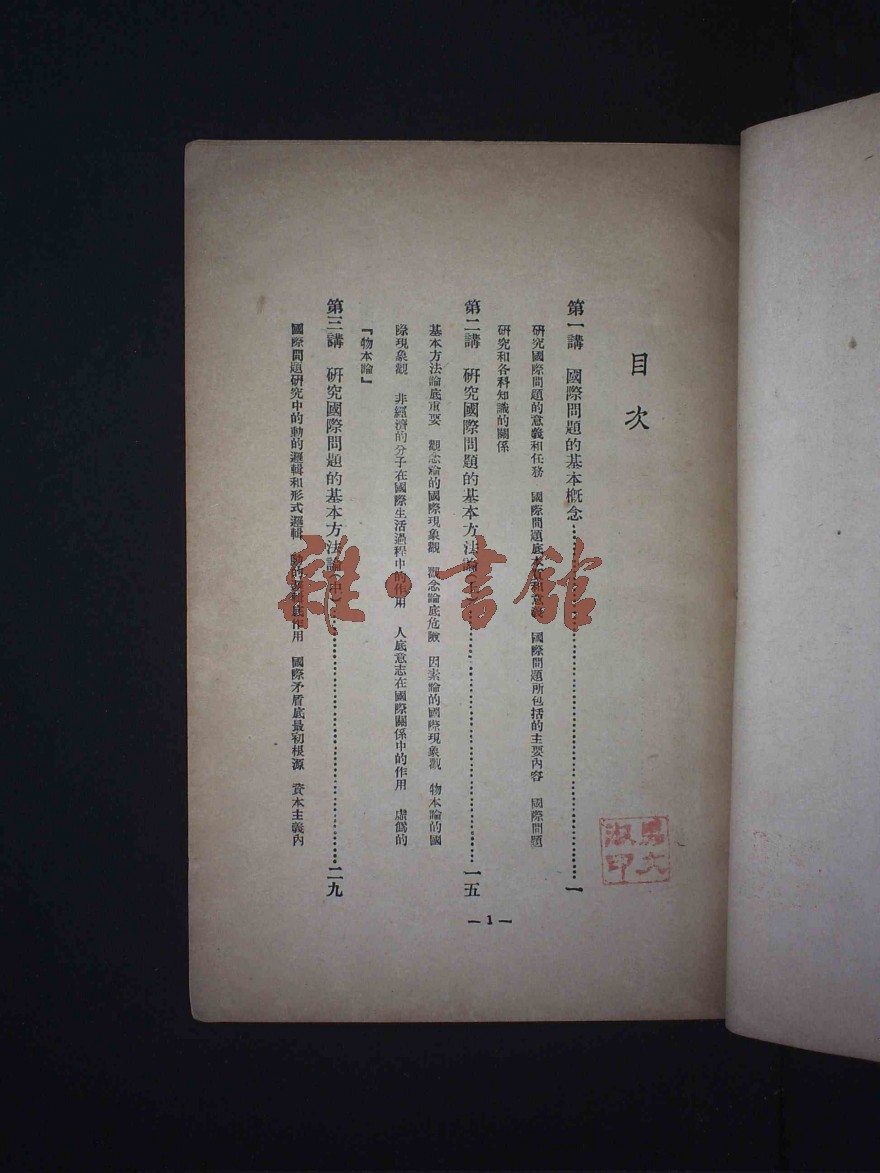 目次
第一講　國際問題的基本概念……一
研究國際問題的意義和任務　國際問題底本質和意義　國際問題所包括的主要內容　國際問題
研究和各科知識的關係
第二講　研究國際問題的基本方法論……一五
基本方法論底重要　觀念論的國際現象觀　觀念論底危險　因素論的國際現象觀　物本論的國
際現象觀　非經濟的分子在國際生活過程中的作用　人底意志在國際關係中的作用　虛僞的
『物本論』
第三講　研究國際問題的基本方法論……二九
國際問題研究中的動的邏輯和形式邏輯　動的邏輯底作用　國際矛盾底最初根源　資本主義內
—1—
雜·書館